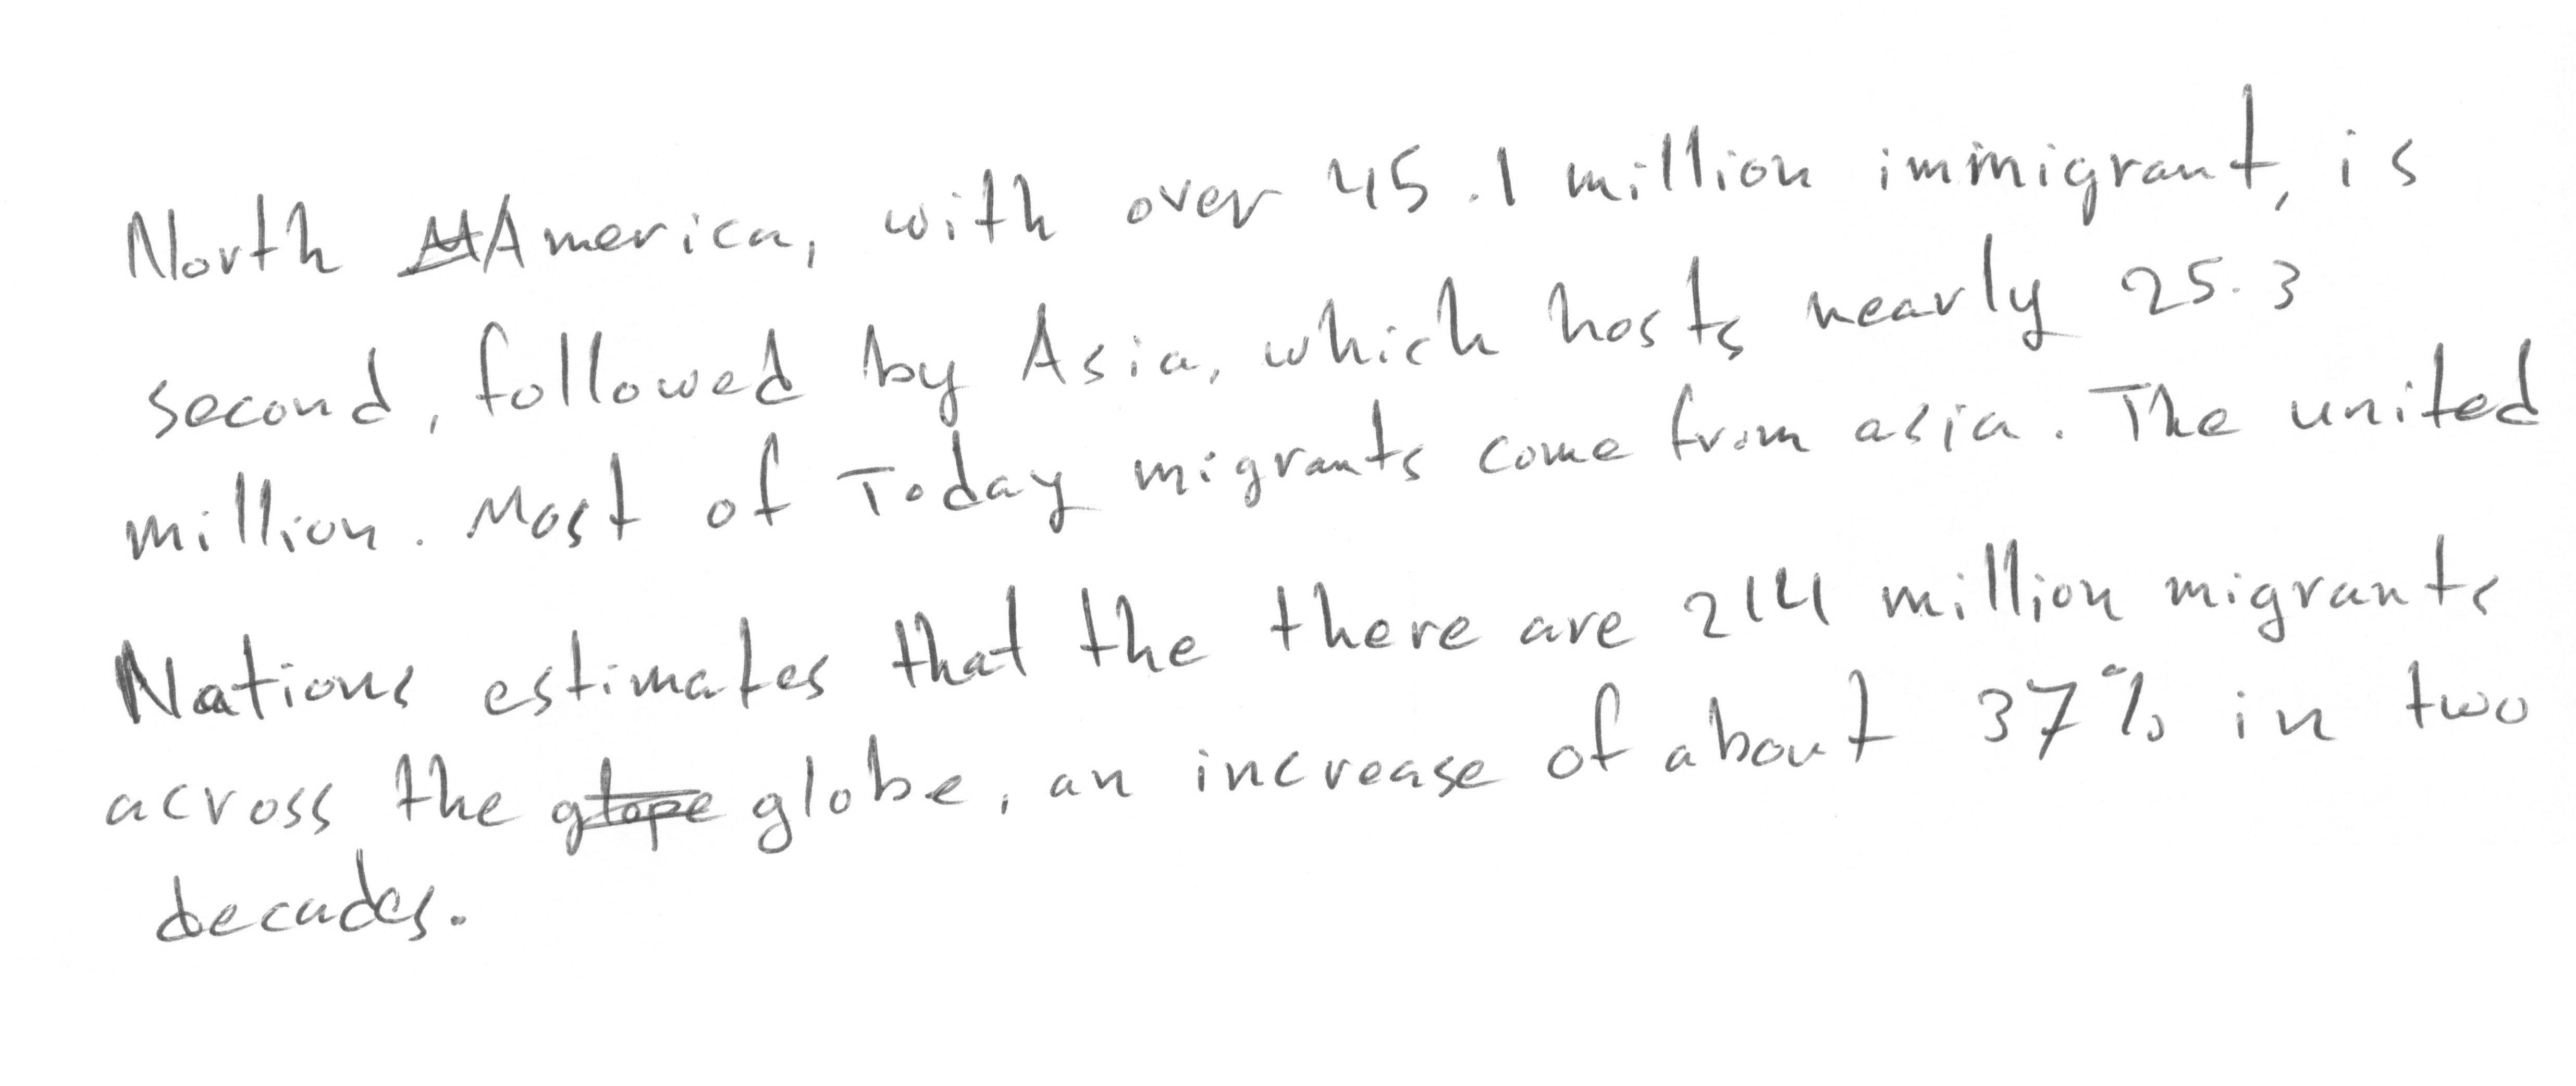 North America, with over 45.1 million immigrant, is
second, followed by Asia, which hosts nearly 25.3
million. Most of Today migrants come from asia. The united
Nations estimates that the there are 214 million migrants
across the globe, an increase of about 37% in two
decades.